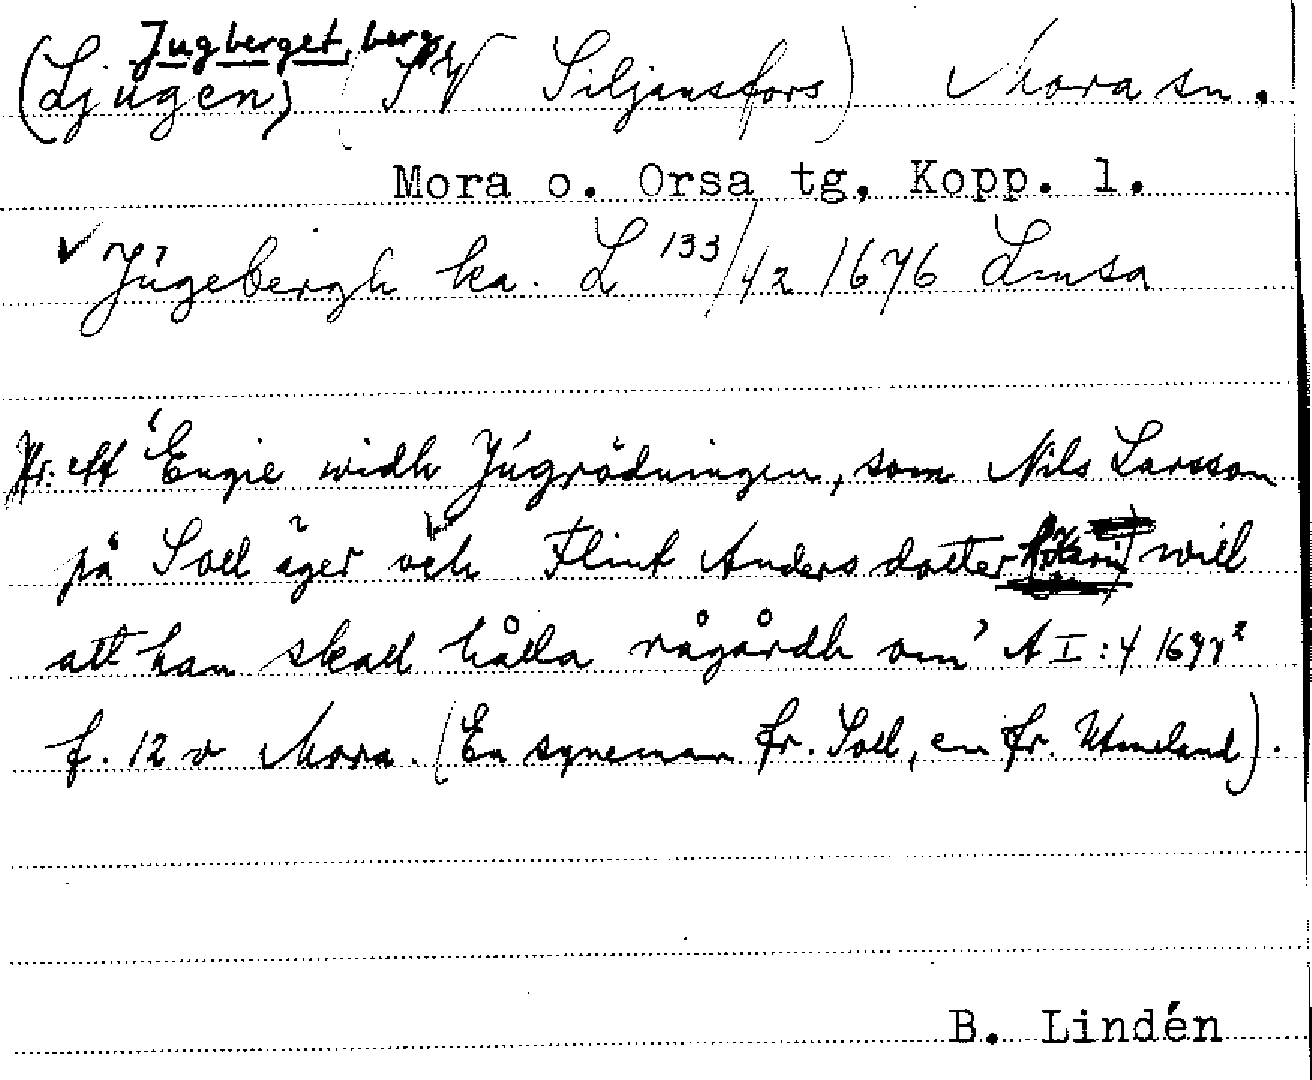 Jugberget, berg
(Ljugen) (SV Siljansfors) Mora sn.
Mora o. Orsa tg. Kopp. l.
✓ Jügebergh ka. L 133/42 1676 Lmsa
Jfr: ett 'Engie widh Júgrödningen, som Nils Larsson
på Soll äger och Flint Anders dotter will
att han skall hålla rågårdh om' A I:4
f. 12 v Mora. (En syneman fr. Soll, en fr. Utmeland).
B. Lindén